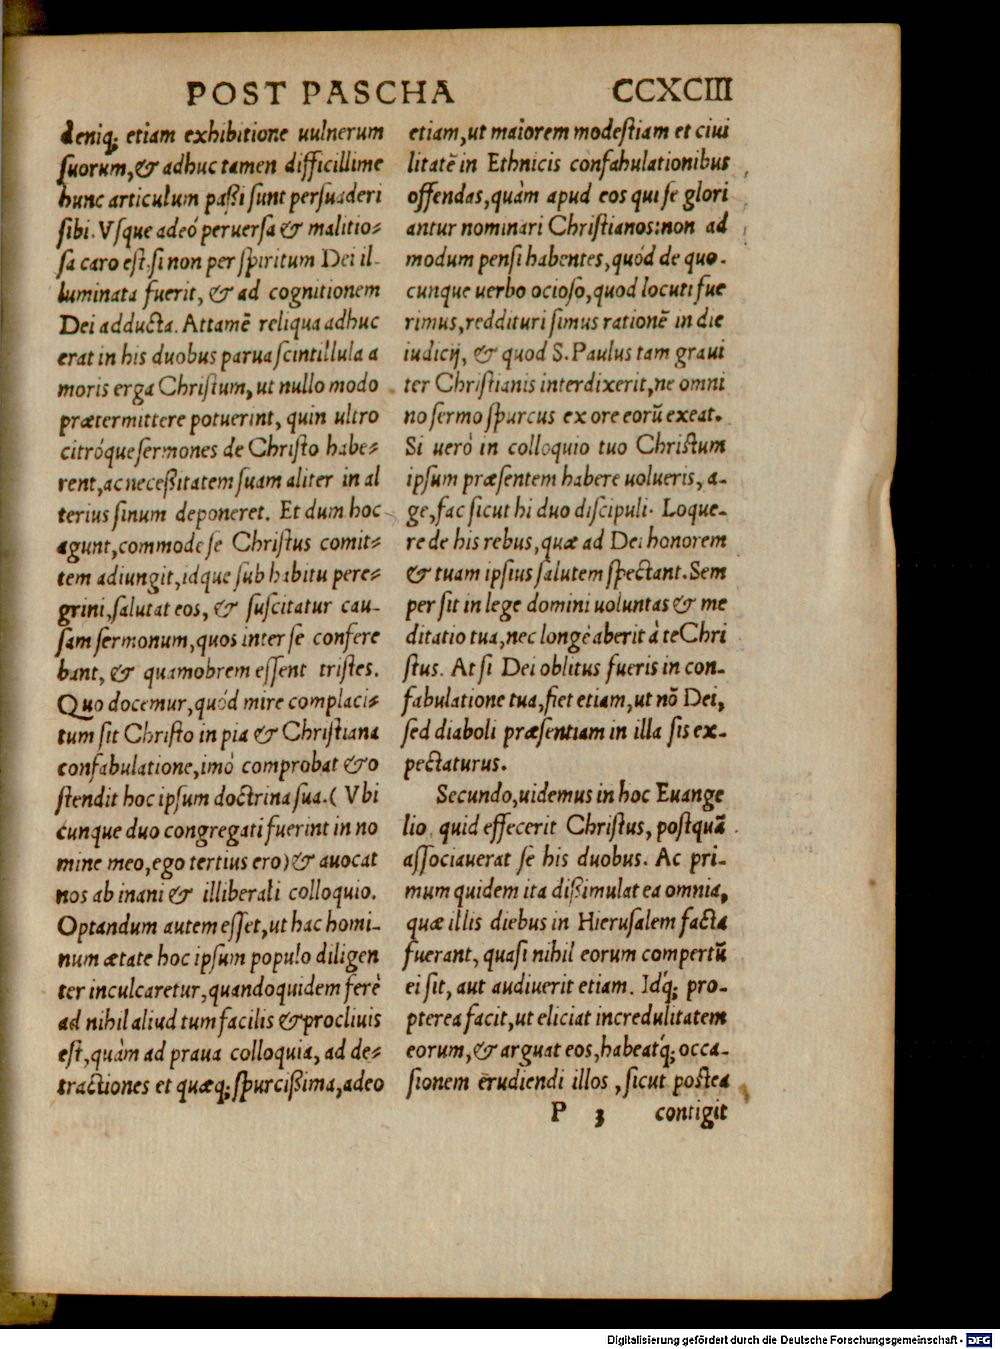 POST PASCHA CCXCIII
deniq; etiam exhibitione uulnerum
suorum,& adhuc tamen difficillime
hunc articulum paßi sunt persuaderi
sibi. Vsque adeó peruersa & malitio=
sa caro est,si non per spiritum Dei il-
luminata fuerit, & ad cognitionem
Dei adducta. Attamē reliqua adhuc
erat in his duobus parua scintillula a
moris erga Christum, ut nullo modo
prætermittere potuerint, quin ultro
citróque sermones de Christo habe=
rent,ac neceßitatem suam aliter in al
terius sinum deponeret. Et dum hoc
agunt,commode se Christus comit=
tem adiungit,idque sub habitu pere=
grini,salutat eos, & suscitatur cau-
sam sermonum,quos inter se confere
bant, & quamobrem essent tristes.
Quo docemur,quód mire complaci=
tum sit Christo in pia & Christiana
confabulatione,imò comprobat & o
stendit hoc ipsum doctrina sua.( Vbi
cunque duo congregati fuerint in no
mine meo,ego tertius ero) & auocat
nos ab inani & illiberali colloquio.
Optandum autem esset,ut hac homi-
num ætate hoc ipsum populo diligen
ter inculcaretur,quandoquidem ferè
ad nihil aliud tum facilis & procliuis
est,quàm ad praua colloquia, ad de=
tractiones et quæq; spurcißima,adeo
etiam,ut maiorem modestiam et ciui
litatē in Ethnicis confabulationibus
offendas,quàm apud eos qui se glori
antur nominari Christianos:non ad
modum pensi habentes,quód de quo-
cunque uerbo ocioso,quod locuti fue
rimus,reddituri simus rationē in die
iudicij, & quod S. Paulus tam graui
ter Christianis interdixerit,ne omni
no sermo spurcus ex ore eorū exeat.
Si uerò in colloquio tuo Christum
ipsum præsentem habere uolueris, a-
ge,fac sicut hi duo discipuli. Loque-
re de his rebus,quæ ad Dei honorem
& tuam ipsius salutem spectant.Sem
per sit in lege domini uoluntas & me
ditatio tua,nec longè aberit à te Chri
stus. At si Dei oblitus fueris in con-
fabulatione tua,fiet etiam,ut nõ Dei,
sed diaboli præsentiam in illa sis ex-
pectaturus.
Secundo,uidemus in hoc Euange
lio quid effecerit Christus, postquā
associauerat se his duobus. Ac pri-
mum quidem ita dißimulat ea omnia,
quæ illis diebus in Hierusalem facta
fuerant, quasi nihil eorum compertū
ei sit, aut audiuerit etiam. Idq́; pro-
pterea facit,ut eliciat incredulitatem
eorum,& arguat eos,habeatq́; occa-
sionem erudiendi illos , sicut postea
P 3 contigit
Digitalisierung gefördert durch die Deutsche Forschungsgemeinschaft - DFG